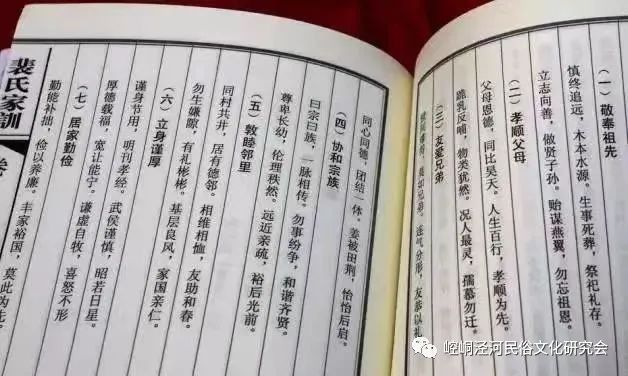 (一)敬奉祖先
慎终追远,木本水源。生事死葬,祭祀礼存。
立志向善,做贤子孙。贻谋燕翼,勿忘祖恩。
(二)孝顺父母
父母恩德,同比昊天。人生百行,孝顺为先。
跪乳反哺,物类犹然。况人最灵,孺慕勿迁。
(三)友爱兄弟
兄弟。连气分形,友恭以礼
同心同德,团结一体。姜被田荆,怡怡后启。
(四)协和宗族
曰宗曰族,一脉相传。勿事纷争,和谐齐贤。
尊卑长幼,伦理秩然。远近亲疏,裕后光前。
(五)敦睦邻里
同村共井,居有德邻。相维相恤,友助和春。
勿生嫌隙,有礼彬彬。基层良风,家国亲仁。
(六)立身谨厚
谨身节用,明刊孝经。武侯谨慎,昭若日星。
厚德载福,宽让能宁。谦虚自牧,喜怒不形
(七)居家勤俭
勤能补拙,俭以养廉。丰家裕国,莫此为先。
裴氏家训
崆峒泾河民俗文化研究会